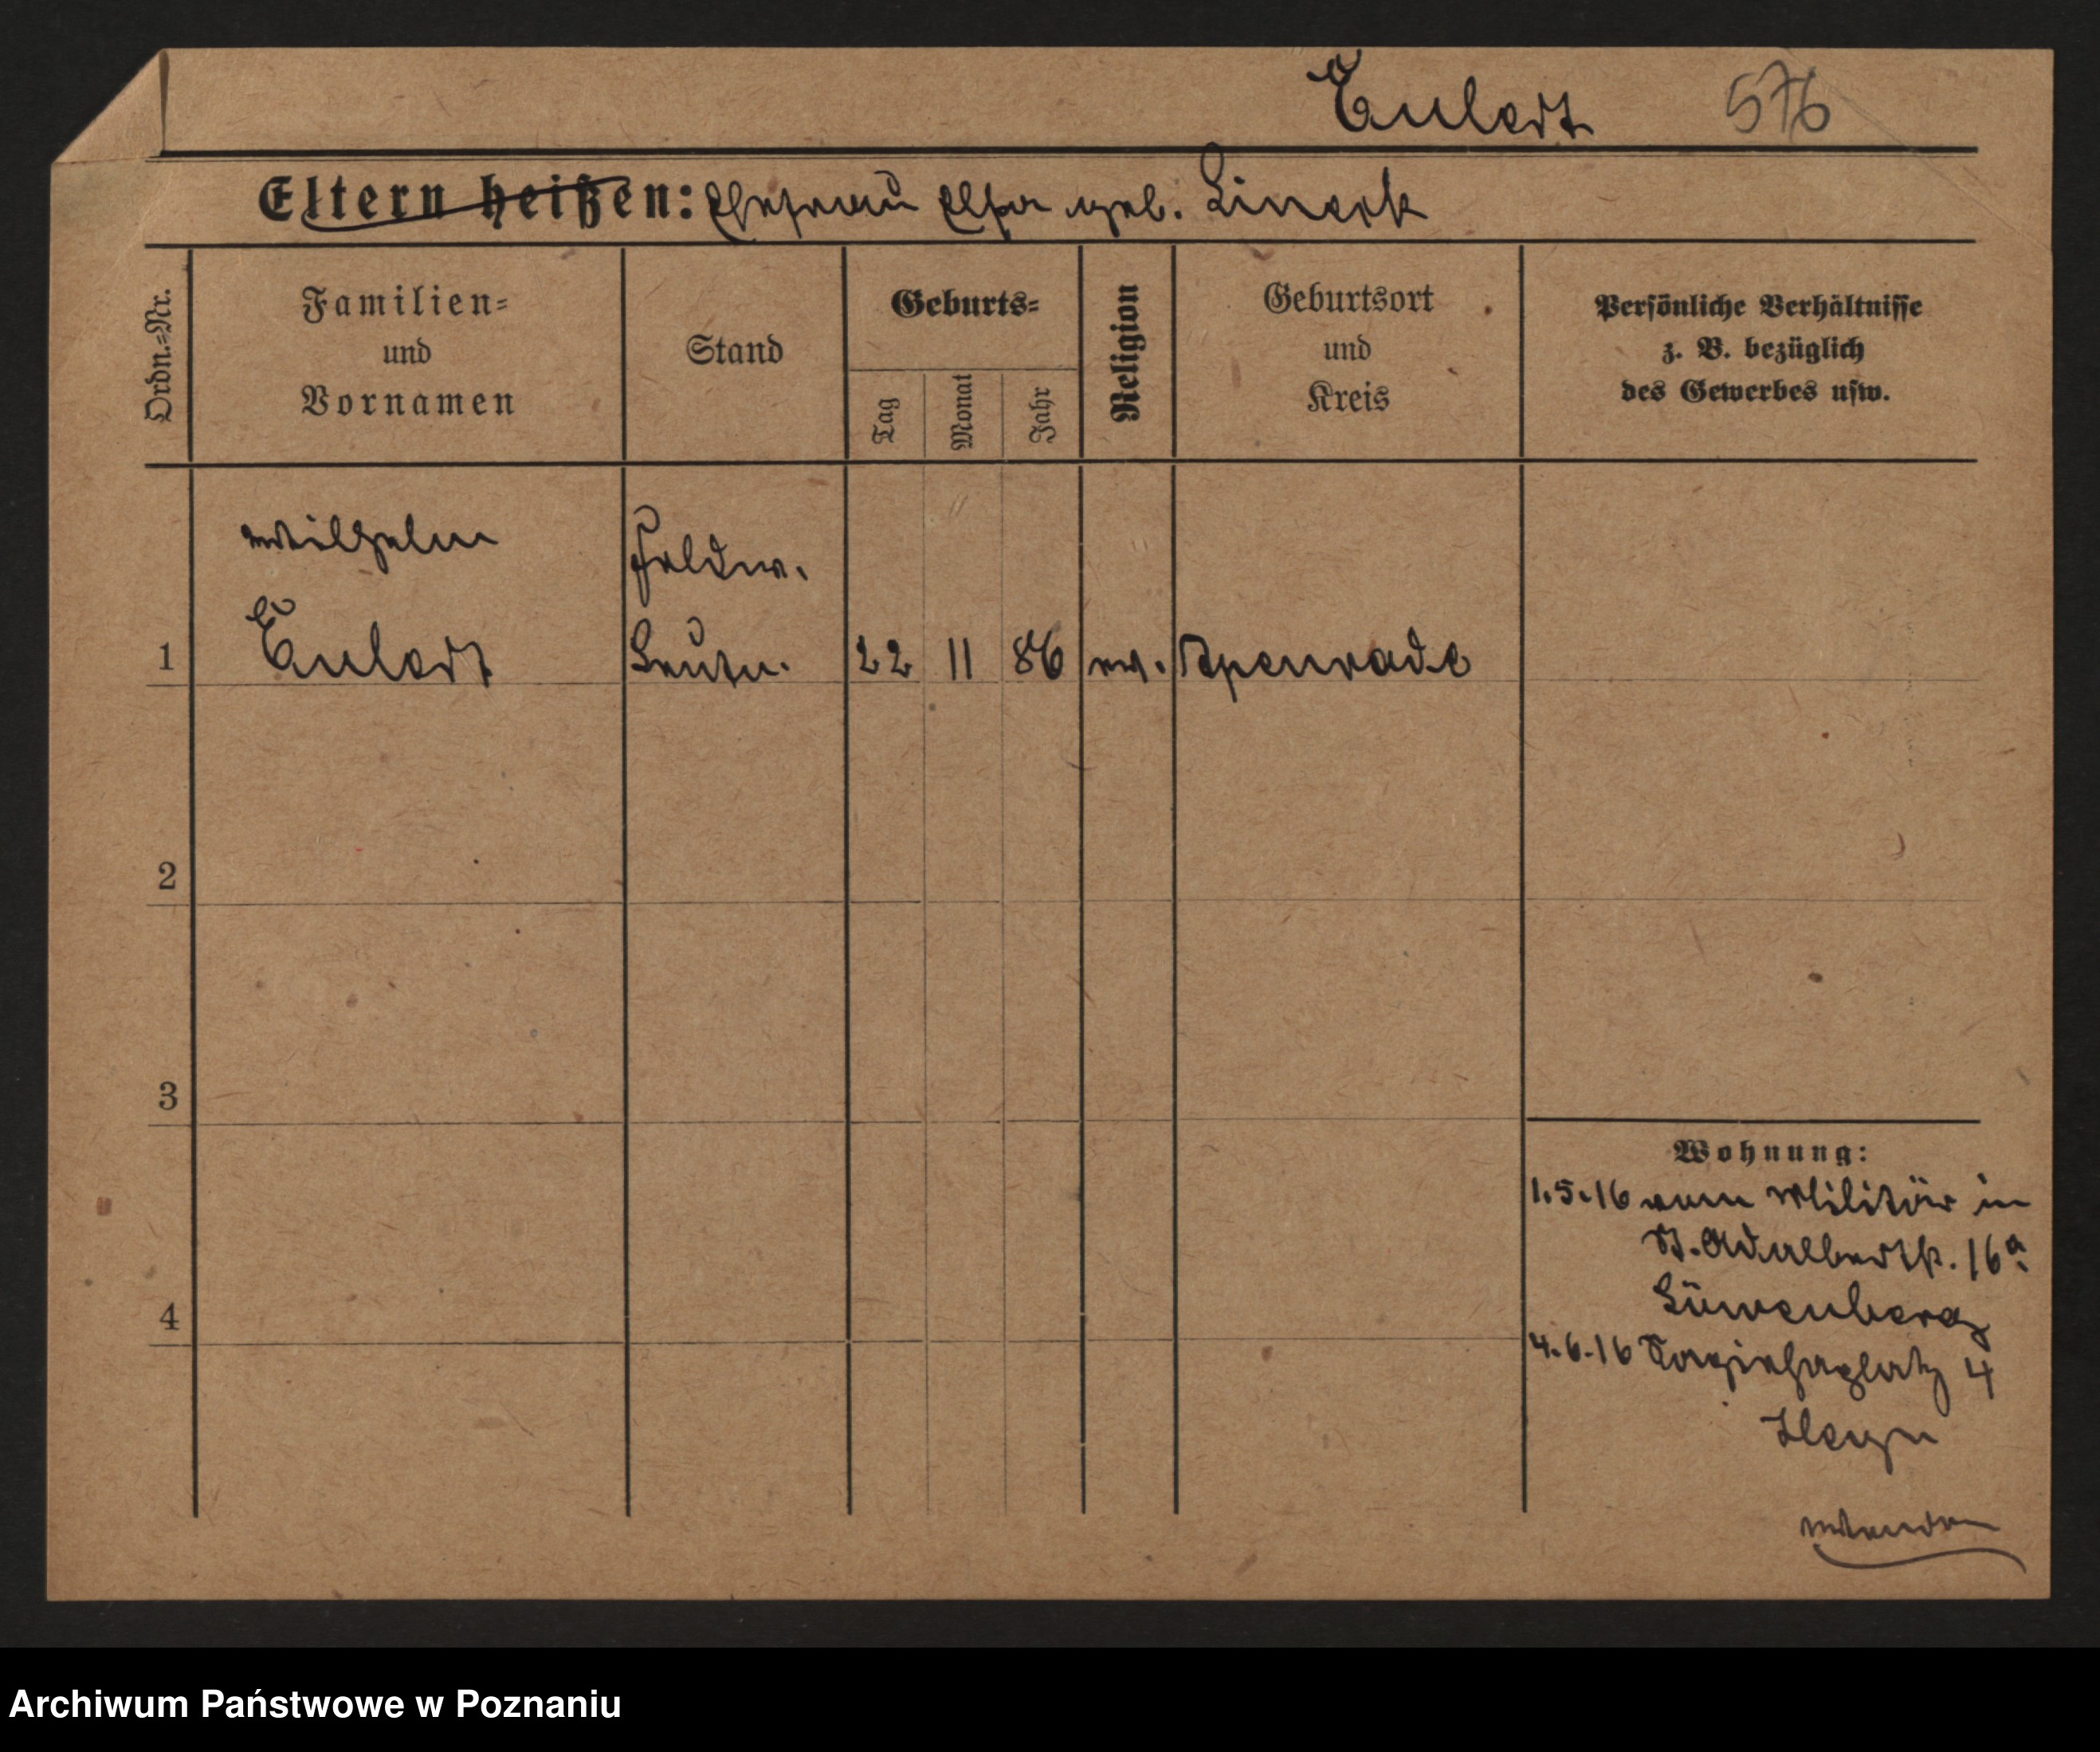 Eulert 576
Eltern heißen: Ehefrau Elsa geb. Linack
Ordn.=Nr.
Familien=
und
Vornamen
Stand
Geburts=
Tag
Monat
Jahr
Religion
Geburtsort
und
Kreis
Persönliche Verhältnisse
z. B. bezüglich
des Gewerbes usw.
Wilhelm
Feldw.
1 Eulert Leutn. 22 11 86 ev. Apenrade
2
3
4
Wohnung:
1.5.16 vom Militär in
St. Adalbertstr. 16a
Löwenberg
4.6.16 4
Heyn
wenden
Archiwum Państwowe w Poznaniu